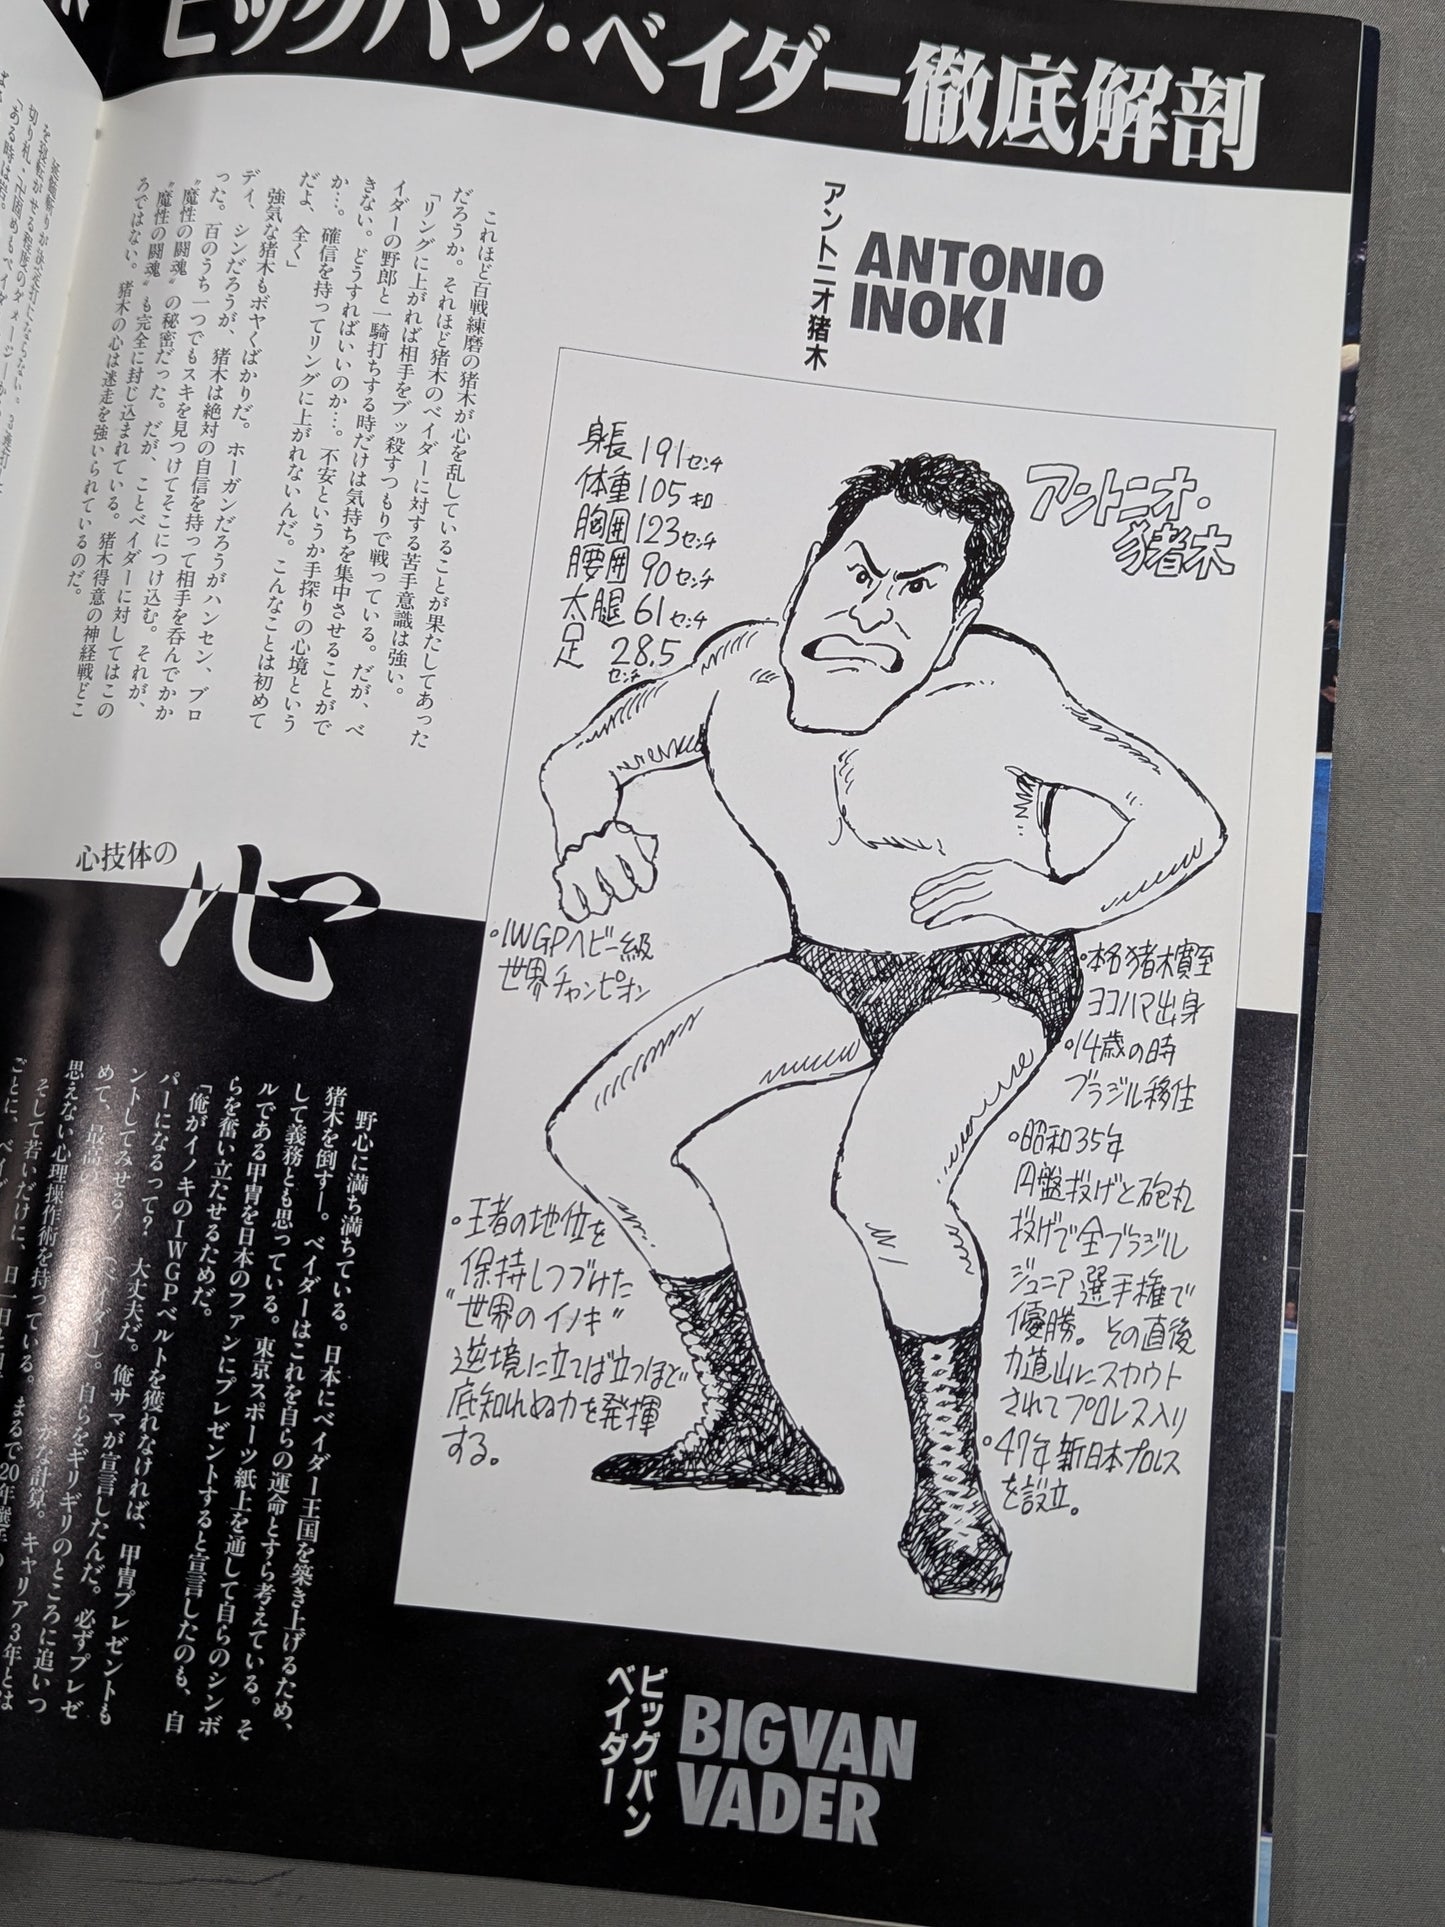 ビッグバン・ベイダー徹底解剖
アントニオ猪木
ANTONIO
INOKI
これほど百戦練磨の猪木が心を乱していることが果たしてあった
だろうか。それほど猪木のベイダーに対する苦手意識は強い。
「リングに上がれば相手をブッ殺すつもりで戦っている。だが、ベ
イダーの野郎と一騎打ちする時だけは気持ちを集中させることがで
きない。どうすればいいのか…。不安というか手探りの心境という
か…。確信を持ってリングに上がれないんだ。こんなことは初めて
だよ、全く」
強気な猪木もボヤくばかりだ。ホーガンだろうがハンセン、ブロ
ディ、シンだろうが、猪木は絶対の自信を持って相手を呑んでかか
った。百のうち一つでもスキを見つけてそこにつけ込む。それが、
〝魔性の闘魂〟の秘密だった。だが、ことベイダーに対してはこの
〝魔性の闘魂〟も完全に封じ込まれている。猪木得意の神経戦どこ
ろではない。猪木の心は迷走を強いられているのだ。
心技体の
心
アントニオ・
猪木
身長 191センチ
体重 105キロ
胸囲 123センチ
腰囲 90センチ
太腿 61センチ
足 28.5
センチ
•IWGPヘビー級
世界チャンピオン
•本名猪木寛至
ヨコハマ出身
•14歳の時
ブラジル移住
•昭和35年
円盤投げと砲丸
投げで全ブラジル
ジュニア選手権で
優勝。その直後
力道山にスカウト
されてプロレス入り
•47年新日本プロレス
を設立。
•王者の地位を
保持しつづけた
“世界のイノキ”
逆境に立てば立つほど
底知れぬ力を発揮
する。
野心に満ち満ちている。日本にベイダー王国を築き上げるため、
猪木を倒すー。ベイダーはこれを自らの運命とすら考えている。そ
して義務とも思っている。東京スポーツ紙上を通して自らのシンボ
ルである甲冑を日本のファンにプレゼントすると宣言したのも、自
らを奮い立たせるためだ。
「俺がイノキのIWGPベルトを獲れなければ、甲冑プレゼントも
パーになるって? 大丈夫だ。俺サマが宣言したんだ。必ずプレゼ
ントしてみせる!」(ベイダー)。自らをギリギリのところに追いつ
めて、最高の
思えない心理操作術を持っている。まるで20年選手の
ビッグバン
ベイダー
BIGVAN
VADER